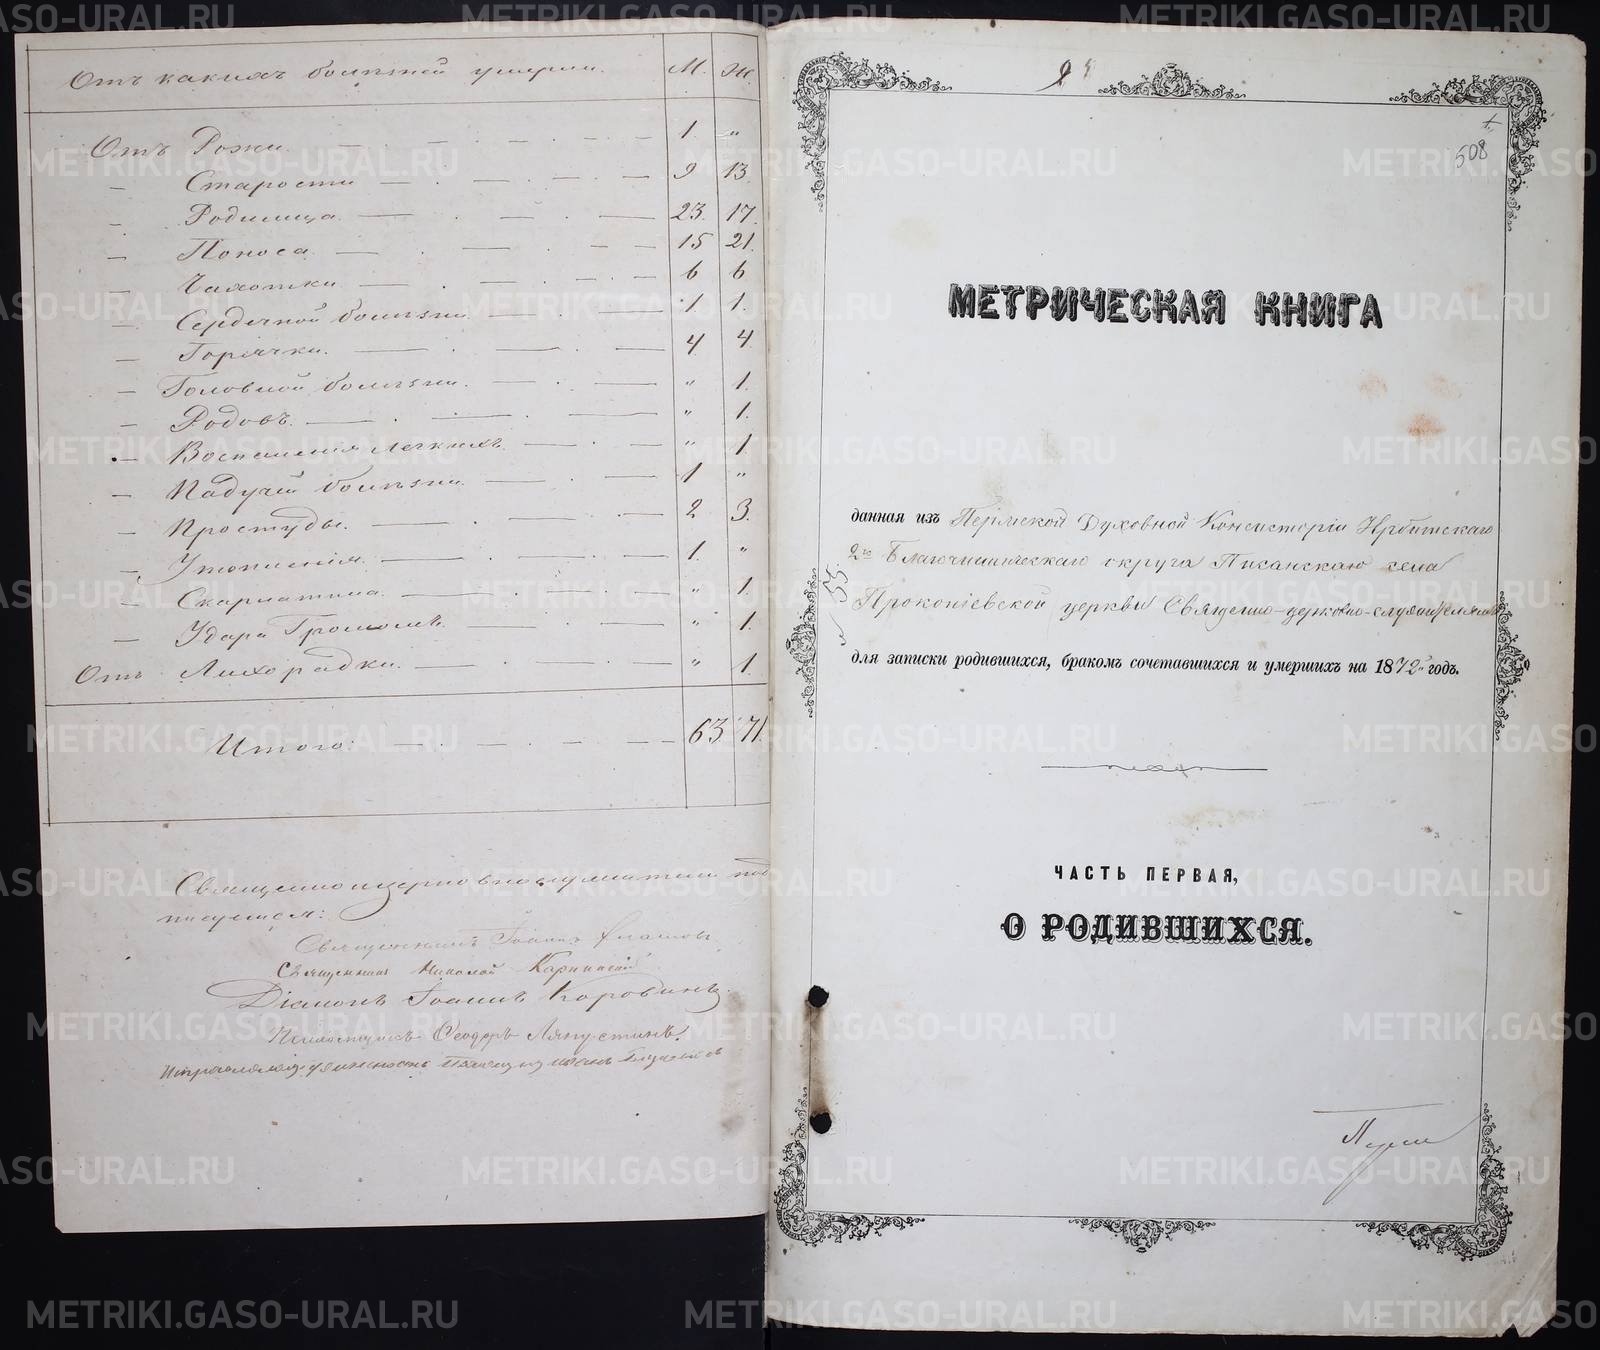 Отъ какихъ болѣзней умерли. М. Ж.
Отъ Рожи 1. „
– Старости 9 13.
– Родимца 23. 17.
– Поноса 15 21.
– Чахотки 6 6
– Сердечной болѣзни 1 1.
– Горячки. 4 4.
– Головной болѣзни. „ 1.
– Родовъ. „ 1.
– Воспаленія легкихъ. „ 1
– Падучей болѣзни. 1 „
– Простуды. 2 3.
– Утопленія. 1. „
– Скарлатина. „ 1.
– Удара Громомъ. „ 1.
Отъ Лихорадки. „ 1.
Итого: 63 71.
Священно и церковнослужители под
писуемся:
Священникъ Іоаннъ
Священникъ Николай
Діаконъ Іоаннъ Коровинъ.
Псаломщикъ Ѳеодоръ Ляпустинъ.
должность
508
МЕТРИЧЕСКАЯ КНИГА
данная изъ Пермской Духовной Консисторіи Ирбитскаго
2го Благочинническаго округа Писанскаго села
Прокопіевской церкви Священно-церковно-служителямъ
для записки родившихся, бракомъ сочетавшихся и умершихъ на 1872й годъ.
ЧАСТЬ ПЕРВАЯ,
О РОДИВШИХСЯ.
METRIKI.GASO-URAL.RU